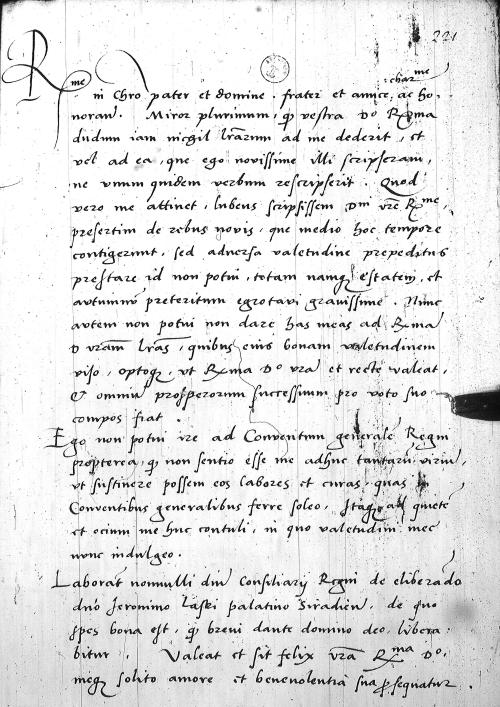 221
Rme in Chro pater et domine, frater et amice charme ac ho-
noran. Miror plurimum, q vestra Do Rma
dudum iam nichil lrarum ad me dederit, et
vel ad ea, que ego novissime illi scripseram,
ne unum quidem verbum rescripserit. Quod
vero me attinet, lubens scripsissem Dni vre Rme,
presertim de rebus novis, que medio hoc tempore
contigerunt, sed adversa valetudine prepeditus
prestare id non potui, totam namq estatem, et
autumnu preteritum egrotavi gravissime. Nunc
autem non potui non dare has meas ad Rma
D vram lras, quibus eius bonam valetudinem
viso, optoq, ut Rma Do vra et recte valeat,
et omniu prosperorum successuum pro voto suo
compos fiat.
Ego non potui ire ad Conventum generale Regni
propterea, q non sentio esse me adhuc tantaru viriu,
ut sustinere possem eos labores et curas, quas
Conventibus generalibus ferre soleo, Itaq ad quiete
et ocium me huc contuli, in quo valetudini mee
nunc indulgeo.
Laborat nonnulli dni Consiliarij Regni de eliberado
dno Jeronimo Laski palatino Siradien, de quo
spes bona est, q brevi dante domino deo, libera-
bitur. Valeat et sit felix vra Rma Do,
meq solito amore et benevolentia sua psequatur.